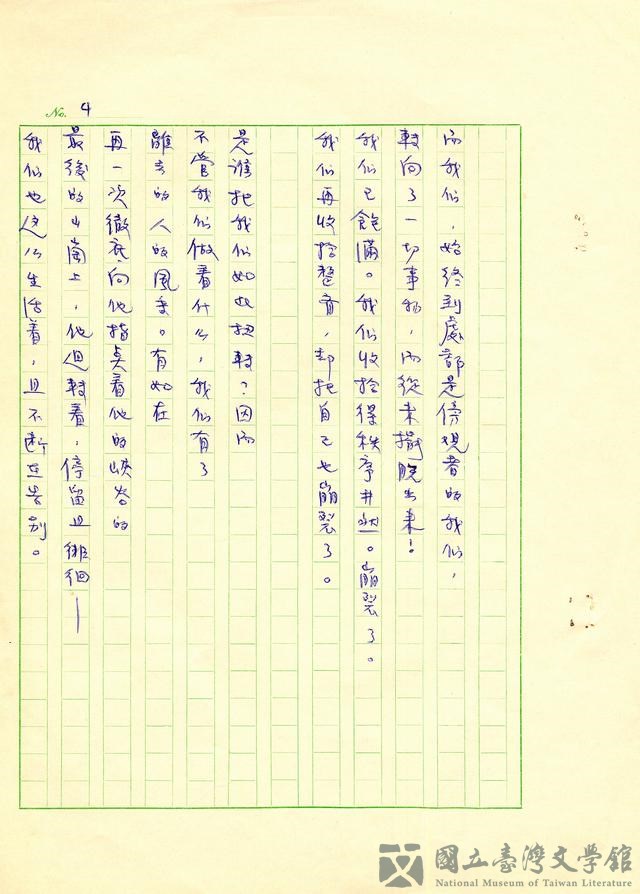 No. 4
而我們，始終到處都是傍觀者的我們，
轉向了一切事物，而從未擺脫出來！
我們已飽滿。我們收拾得秩序井然。崩裂了。
我們再收拾整齊，却把自己也崩裂了。
是誰把我們如此扭轉？因而
不管我們做着什么，我們有了
離去的人的風采。有如在
再一次徹底向他指点着他的峽谷的
最後的山崗上，他迴轉着，停留且徘徊—
我们也这么生活着，且不断在告别。
國立臺灣文學館
National Museum of Taiwan Literature